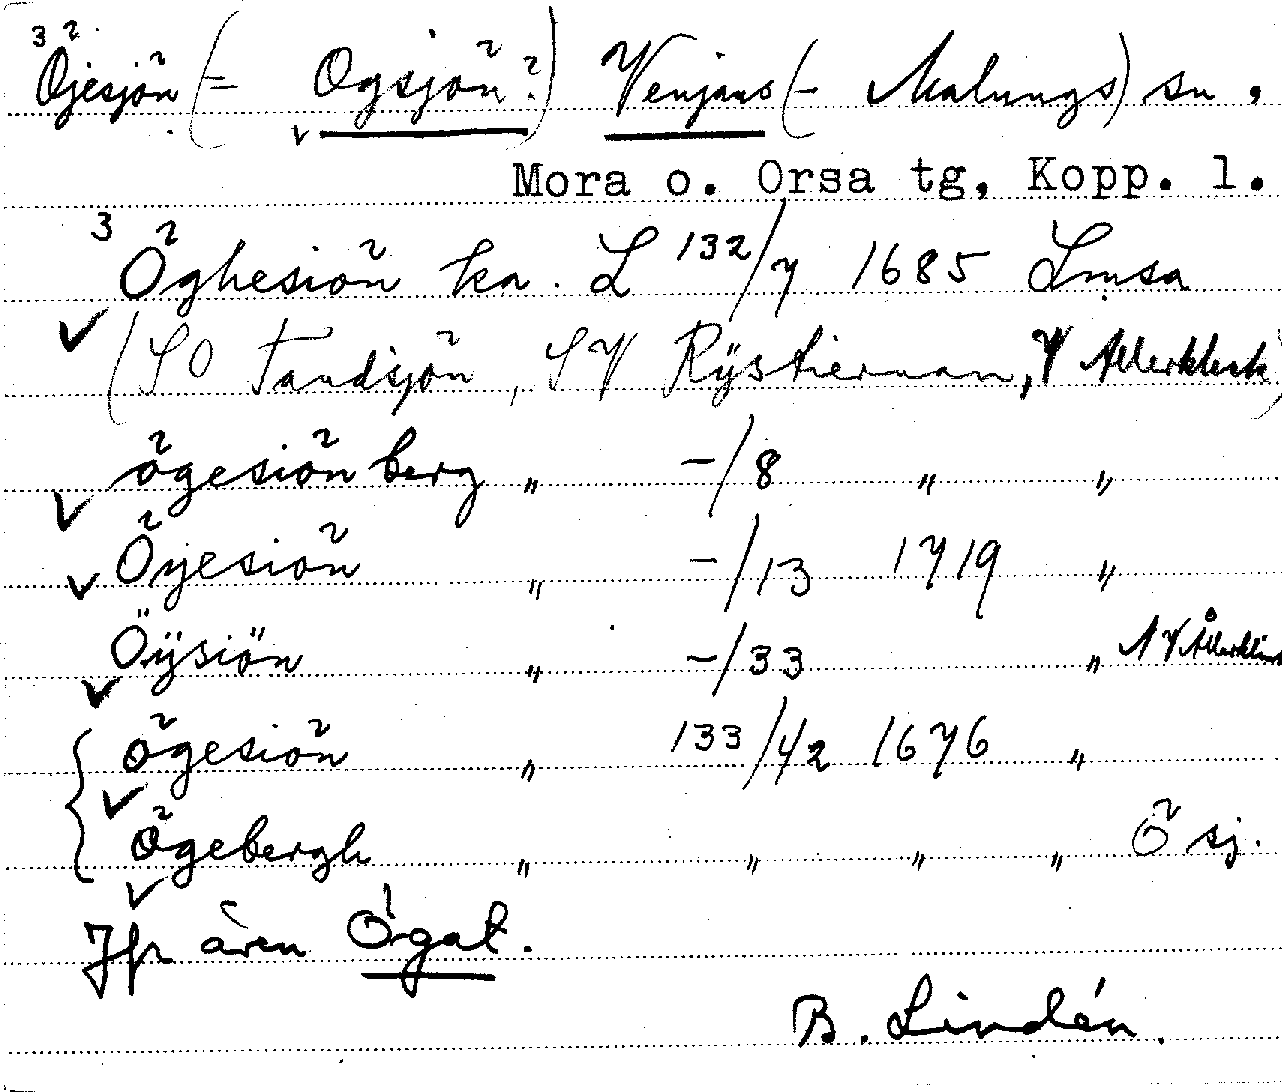 3 Öjesjön (= Ögsjön?) Venjans (- Malungs) sn,
Mora o. Orsa tg, Kopp. l.
3 Öghesiön ka. L 132/7 1685 Lmsa
(SO Tandsjön, SV Rÿstiernan, V
ögesiön berg „ -/8 „ „
Öyesiön „ -/13 1719 „
Öÿsiön „ -/33 „ NV
ögesiön „ 133/42 1676 „
ögebergh „ „ „ „ Ö sj.
Jfr även Ögat.
B. Lindén.